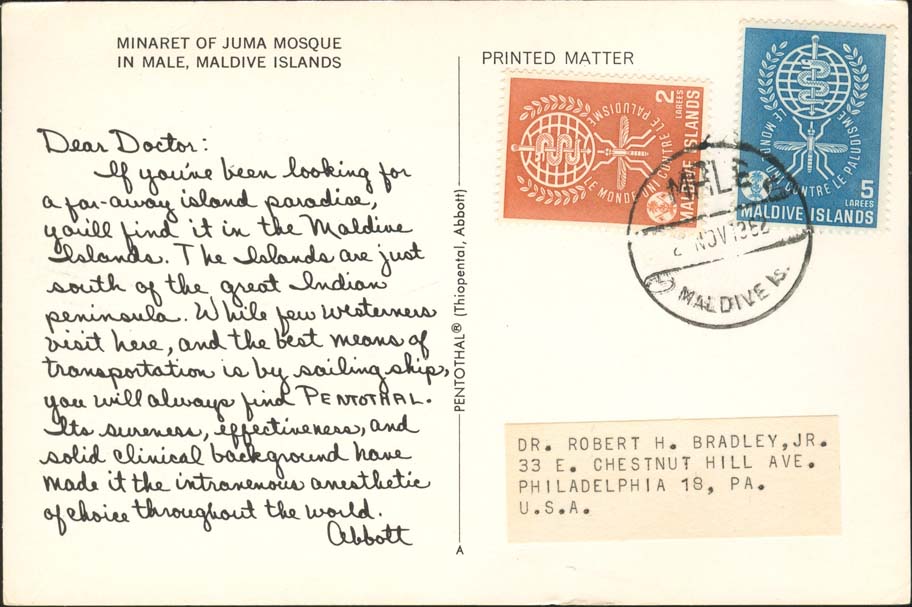 MINARET OF JUMA MOSQUE
IN MALE, MALDIVE ISLANDS
Dear Doctor:
If you've been looking for
a far-away island paradise,
you'll find it in the Maldive
Islands. The Islands are just
south of the great Indian
peninsula. While few westerners
visit here, and the best means of
transportation is by sailing ship,
you will always find PENTOTHAL.
Its sureness, effectiveness, and
solid clinical background have
made it the intravenous anesthetic
of choice throughout the world.
Abbott
PENTOTHAL® (Thiopental, Abbott)
A
PRINTED MATTER
2
LAREES
MALDIVE ISLANDS
LE MONDE UNI CONTRE LE PALUDISME
LE MONDE UNI CONTRE LE PALUDISME
5
LAREES
MALDIVE ISLANDS
MALE
NOV 196
MALDIVE IS.
DR. ROBERT H. BRADLEY,JR.
33 E. CHESTNUT HILL AVE.
PHILADELPHIA 18, PA.
U.S.A.